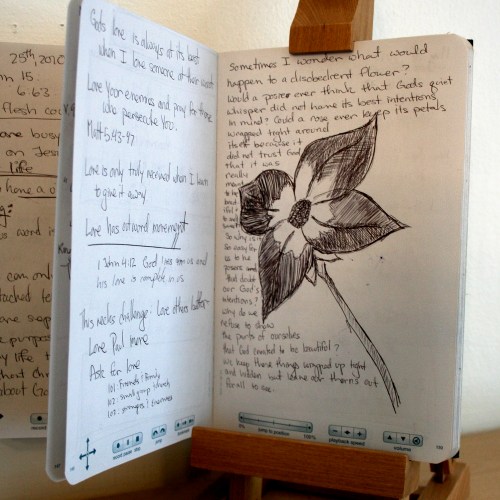 25th, 2010
6:63
flesh
are busy
on Jes
life
have a
is word is
can only
tached to
are sep
purpos
y life t
about Go
Gods love is always at its best
when I love someone at their worst
Love your enemies and pray for those
who persecute you.
Matt 5:43-47
Love is only truly received when I learn
to give it away
Love has outward movement
1 John 4:12 God lives in us and
his love is complete in us
This weeks challenge: Love others better
Love Paul more
Ask for love
101: Friends & Family
102: small group / church
103: strangers / enemies
Sometimes I wonder what would
happen to a disobedient flower?
Would a ever think that Gods quiet
whisper did not have its best intentions
in mind? Could a rose even keep its petals
wrapped tight around
itself because it
did not trust God
that it was
really
meant
to be
beaut
iful
So why is it
so easy for
us to be
and
that doubt
our God's
intentions?
why do we
refuse to show
the parts of ourselves
that God created to be beautiful?
We keep these things wrapped up tight
and hidden but leave our thorns out
for all to see.
0%
jump to position
100%
playback speed
volume